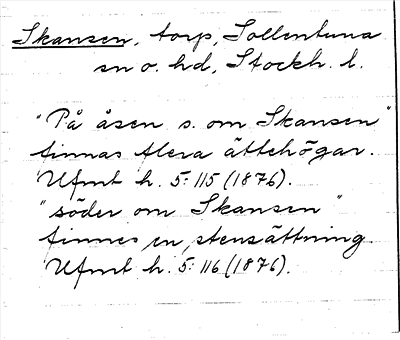 Skansen, torp, Sollentuna
sn o. hd, Stockh. l.
"På åsen s. om Skansen"
finnas flera ättehögar.
Ufmt h. 5: 115 (1876).
"söder om Skansen"
finnes en stensättning.
Ufmt h. 5: 116 (1876).